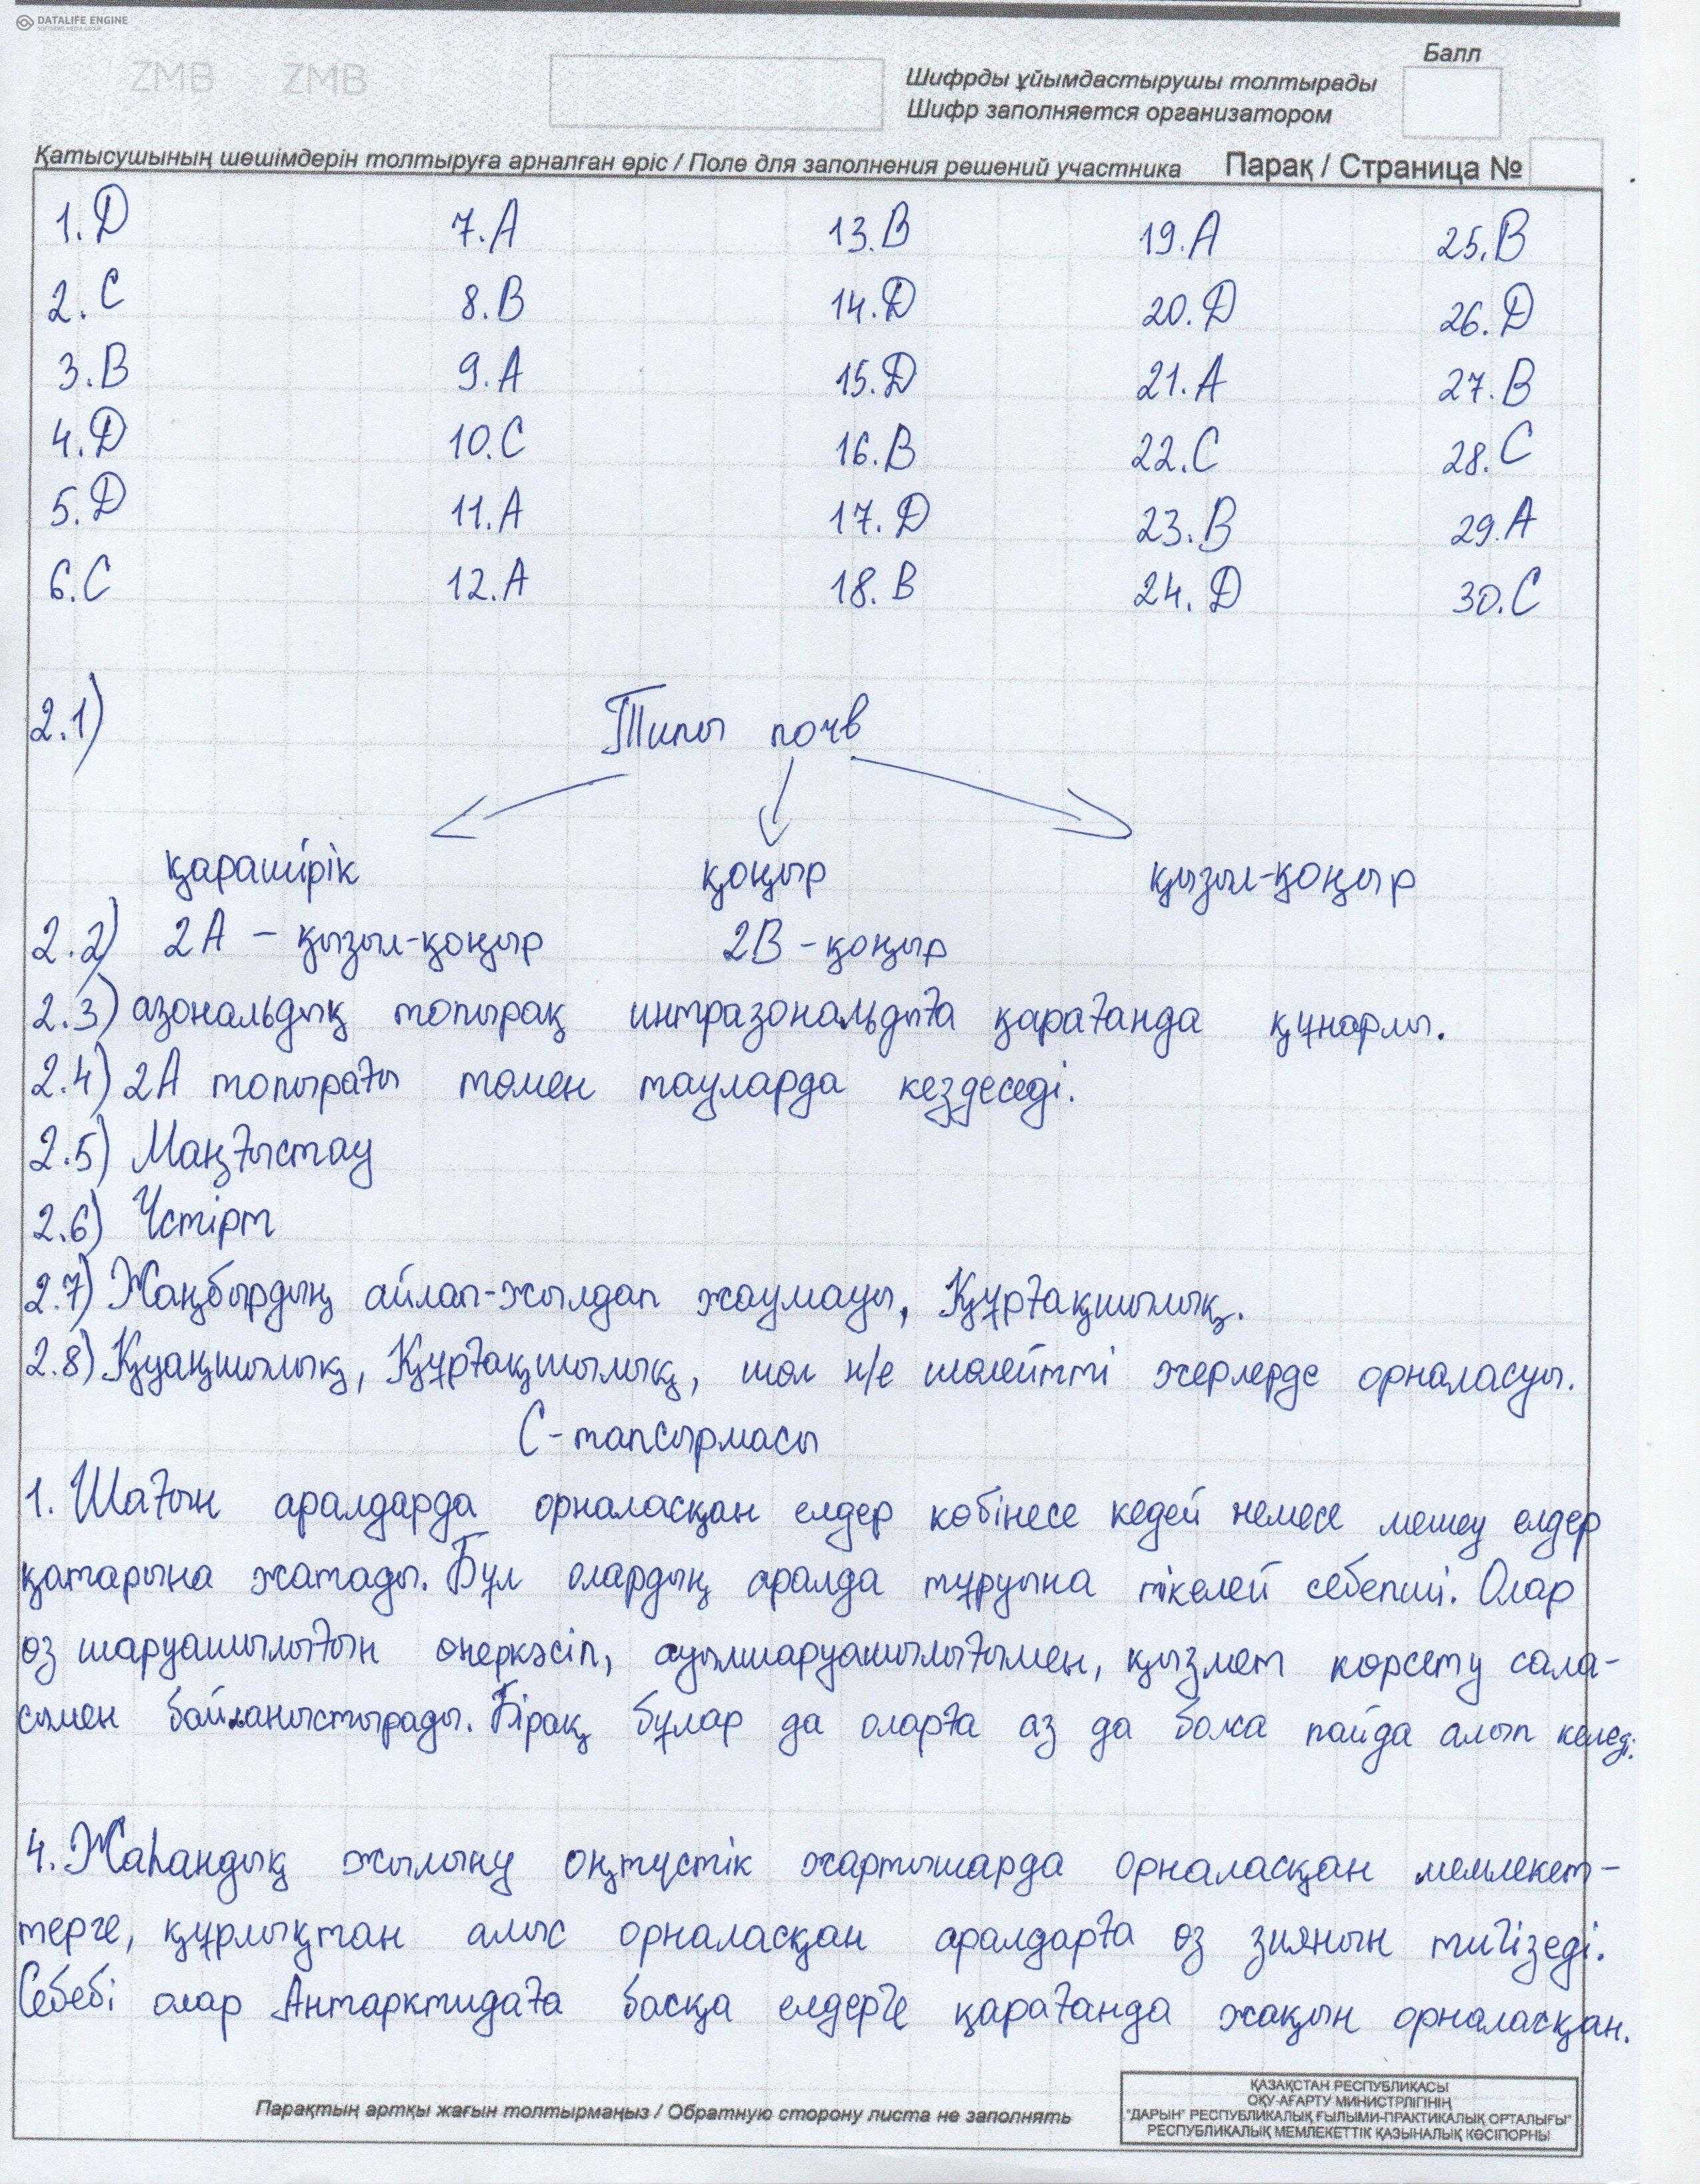 DATALIFE ENGINE
ZMB ZMB
Балл
Шифрды ұйымдастырушы толтырады
Шифр заполняется организатором
Қатысушының шешімдерін толтыруға арналған өріс / Поле для заполнения решений участника Парақ / Страница №
1. D 7. A 13. B 19. A 25. B
2. C 8. B 14. D 20. D 26. D
3. B 9. A 15. D 21. A 27. B
4. D 10. C 16. B 22. C 28. C
5. D 11. A 17. D 23. B 29. A
6. C 12. A 18. B 24. D 30. C
2.1) Типы почв
қарашірік қоңыр қызыл-қоңыр
2.2) 2A – қызыл-қоңыр 2B – қоңыр
2.3) азональдық топырақ интразональдыға қарағанда құнарлы.
2.4) 2A топырағы төмен тауларда кездеседі.
2.5) Маңғыстау
2.6) Үстірт
2.7) Жаңбырдың айлап-жылдап жаумауы, Құрғақшылық.
2.8) Қуаңшылық, Құрғақшылық, шөл н/е шөлейтті жерлерде орналасуы.
С-тапсырмасы
1. Шағын аралдарда орналасқан елдер көбінесе кедей немесе мешеу елдер
қатарына жатады. Бұл олардың аралда тұруына тікелей себепші. Олар
өз шаруашылығын өнеркәсіп, ауылшаруашылығымен, қызмет көрсету сала-
сымен байланыстырады. Бірақ бұлар да оларға аз да болса пайда алып келеді.
4. Жаһандық жылыну оңтүстік жартышарда орналасқан мемлекет-
терге, құрлықтан алыс орналасқан аралдарға өз зиянын тигізеді.
Себебі олар Антарктидаға басқа елдерге қарағанда жақын орналасқан.
Парақтың артқы жағын толтырмаңыз / Обратную сторону листа не заполнять
ҚАЗАҚСТАН РЕСПУБЛИКАСЫ
ОҚУ-АҒАРТУ МИНИСТРЛІГІНІҢ
"ДАРЫН" РЕСПУБЛИКАЛЫҚ ҒЫЛЫМИ-ПРАКТИКАЛЫҚ ОРТАЛЫҒЫ"
РЕСПУБЛИКАЛЫҚ МЕМЛЕКЕТТІК ҚАЗЫНАЛЫҚ КӘСІПОРНЫ